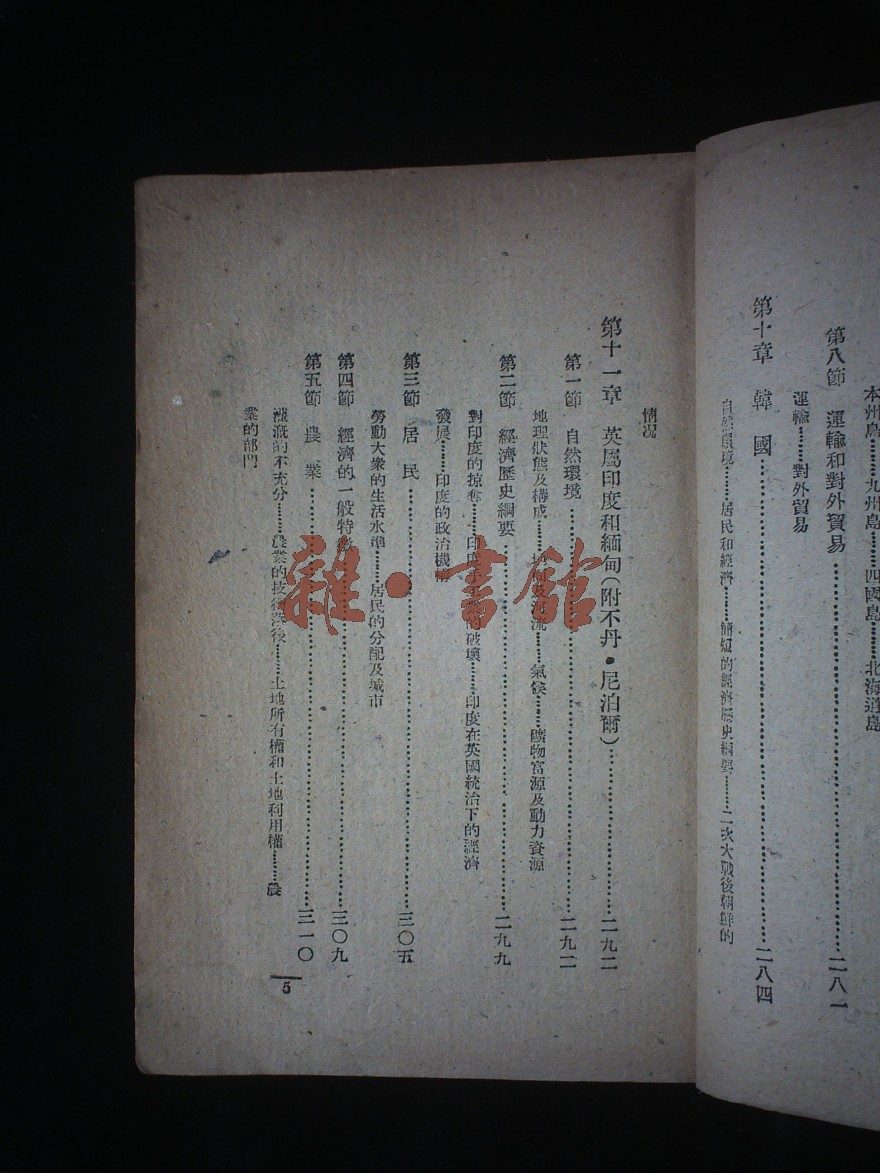 本州島………九州島………四國島………北海道島
第八節 運輸和對外貿易………二八一
運輸………對外貿易
第十章 韓國………二八四
自然環境………居民和經濟………簡短的經濟歷史綱要………二次大戰後朝鮮的
情況
第十一章 英屬印度和緬甸(附不丹•尼泊爾)………二九二
第一節 自然環境………二九二
地理狀態及構成………河流………氣候………礦物富源及動力資源
第二節 經濟歷史綱要………二九九
對印度的掠奪………印度的破壞………印度在英國統治下的經濟
發展………印度的政治機構
第三節 居民………三〇五
勞動大衆的生活水準………居民的分配及城市
第四節 經濟的一般特徵………三〇九
第五節 農業………三一〇
灌溉的不充分………農業的技術落後………土地所有權和土地利用權………農
業的部門
5
雜•書館